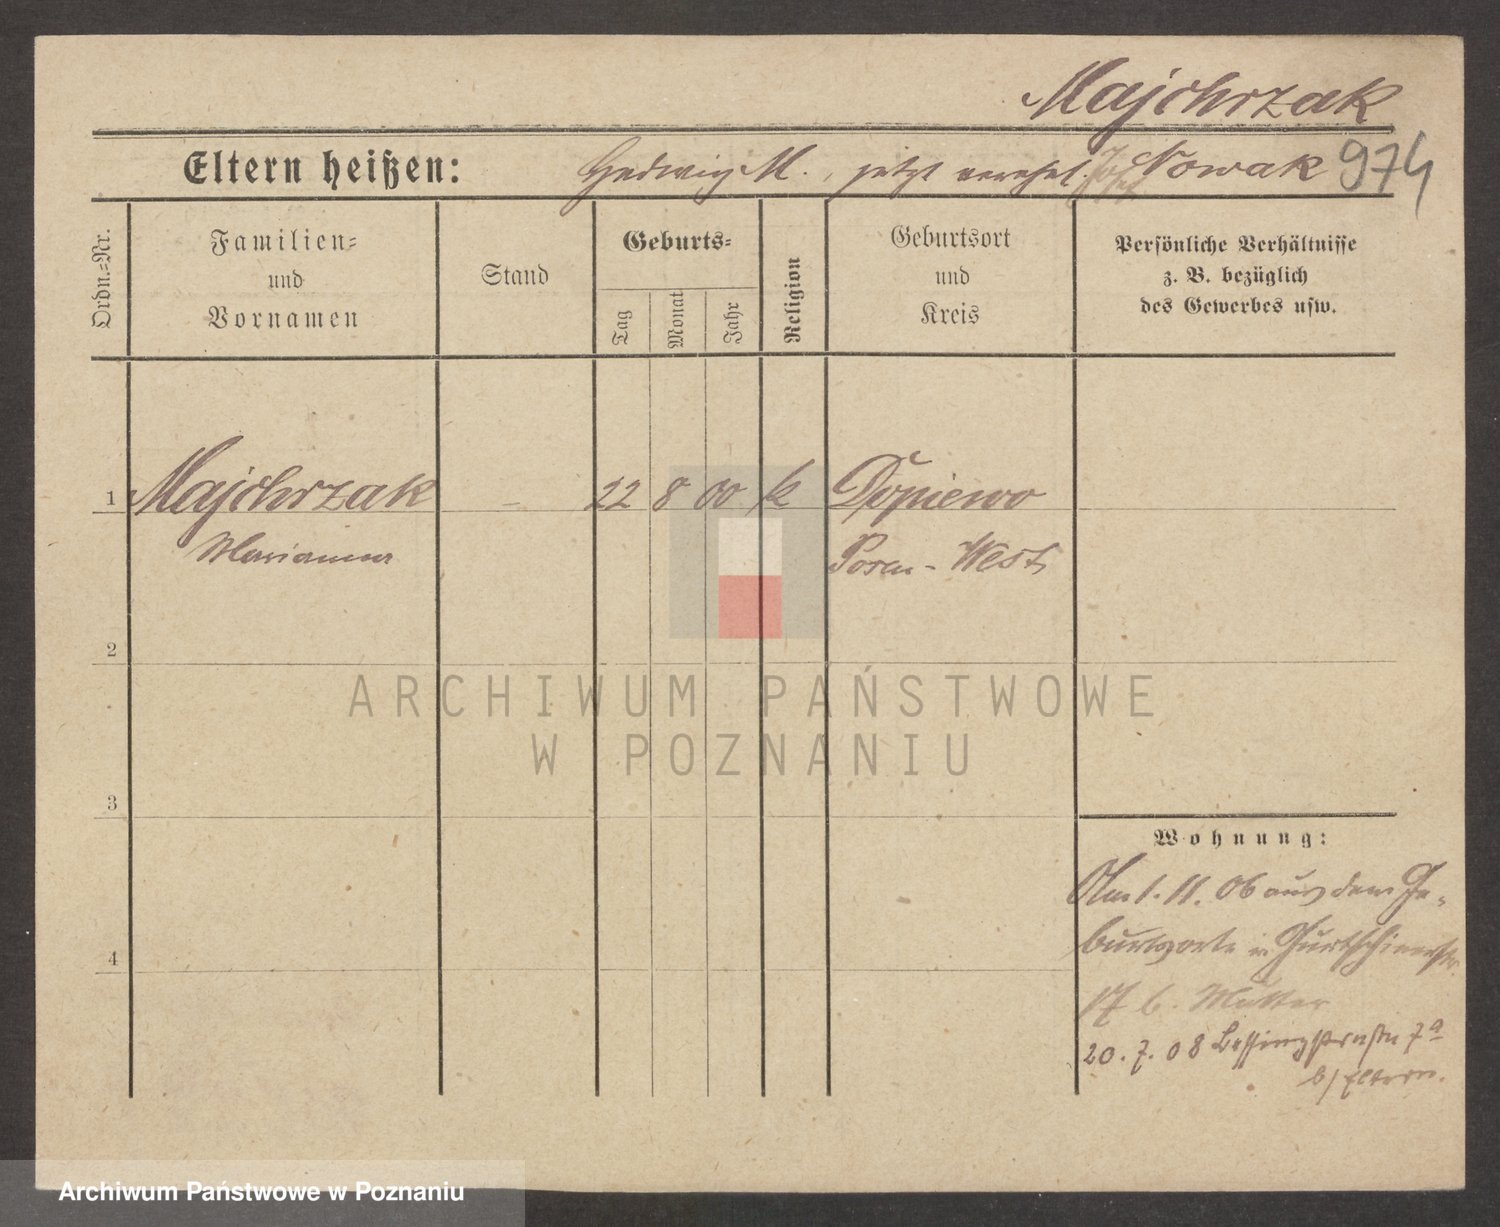 Majchrzak
Eltern heißen: Hedwig M., jetzt verehel. Josef Nowak 974
Ordn.=Nr.
Familien=
und
Vornamen
Stand
Geburts=
Tag
Monat
Jahr
Religion
Geburtsort
und
Kreis
Persönliche Verhältnisse
z. B. bezüglich
des Gewerbes usw.
1 Majchrzak – 22 8 00 k Dopiewo
Marianna Posen-West
2
3
4
Wohnung:
Am 1. 11. 06 aus dem Ge-
burtsorte in Gurtschinerstr.
17 b. Mutter
20. 7. 08 Lessingstraße 7a
b/ Eltern.
ARCHIWUM PAŃSTWOWE
W POZNANIU
Archiwum Państwowe w Poznaniu